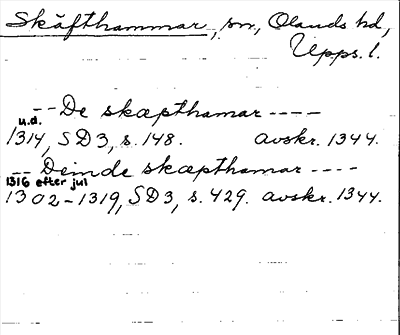 Skäfthammar, sn, Olands hd,
Upps. l.
-- De skæpthamar ----
u.d.
1314, SD3, s. 148. avskr. 1344.
-- Deinde skæpthamar ----
1316 efter jul
1302-1319, SD3, s. 429. avskr. 1344.